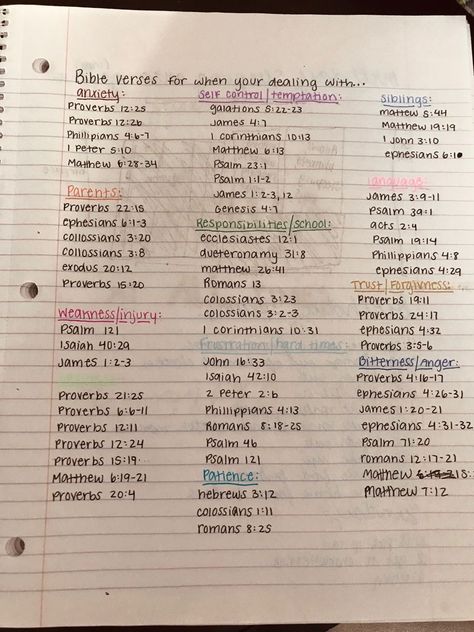 Bible verses for when your dealing with...
anxiety:
Proverbs 12:25
Proverbs 12:26
Phillipians 4:6-7
1 Peter 5:10
Matthew 6:28-34
Parents:
Proverbs 22:15
ephesians 6:1-3
collossians 3:20
collossians 3:8
exodus 20:12
Proverbs 15:20
Weakness/injury:
Psalm 121
Isaiah 40:29
James 1:2-3
Proverbs 21:25
Proverbs 6:6-11
Proverbs 12:11
Proverbs 12:24
Proverbs 15:19
Matthew 6:19-21
Proverbs 20:4
Self control/temptation:
galations 5:22-23
James 4:7
1 corinthians 10:13
Matthew 6:13
Psalm 23:1
Psalm 1:1-2
James 1:2-3,12
Genesis 4:7
Responsibilities/school:
ecclesiastes 12:1
dueteronomy 31:8
matthew 26:41
Romans 13
colossians 3:23
colossians 3:2-3
1 corinthians 10:31
Frustration/hard times:
John 16:33
Isaiah 42:10
2 Peter 2:b
Phillippians 4:13
Romans 8:18-25
Psalm 46
Psalm 121
Patience:
hebrews 3:12
colossians 1:11
romans 8:25
Siblings:
mattew 5:44
Matthew 19:19
1 John 3:10
ephesians 6:10
language:
James 3:9-11
Psalm 39:1
acts 2:4
Psalm 19:14
Phillippians 4:8
ephesians 4:29
Trust/Forgivness:
Proverbs 19:11
Proverbs 24:17
ephesians 4:32
Proverbs 3:5-6
Bitterness/Anger:
Proverbs 4:16-17
ephesians 4:26-31
James 1:20-21
ephesians 4:31-32
Psalm 71:20
romans 12:17-21
Matthew
Matthew 7:12